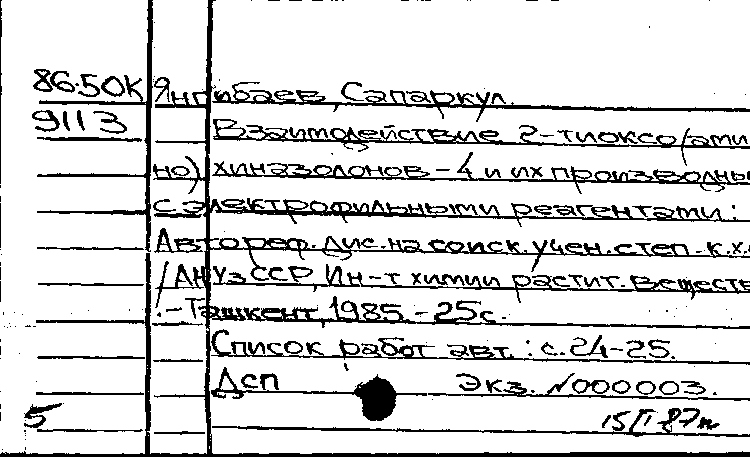 86.50К Янгибаев, Сапаркул.
9113 Взаимодействие 2-тиоксо/ами
но) хиназолонов-4 и их производны
с электрофильными реагентами:
Автореф. дис. на соиск. учен. степ. к.х.
/АН УзССР, Ин-т химии растит. веществ
.-Ташкент, 1985.-25с.
Список работ авт.: с.24-25.
Дсп Экз. №000003.
5 15/I 87